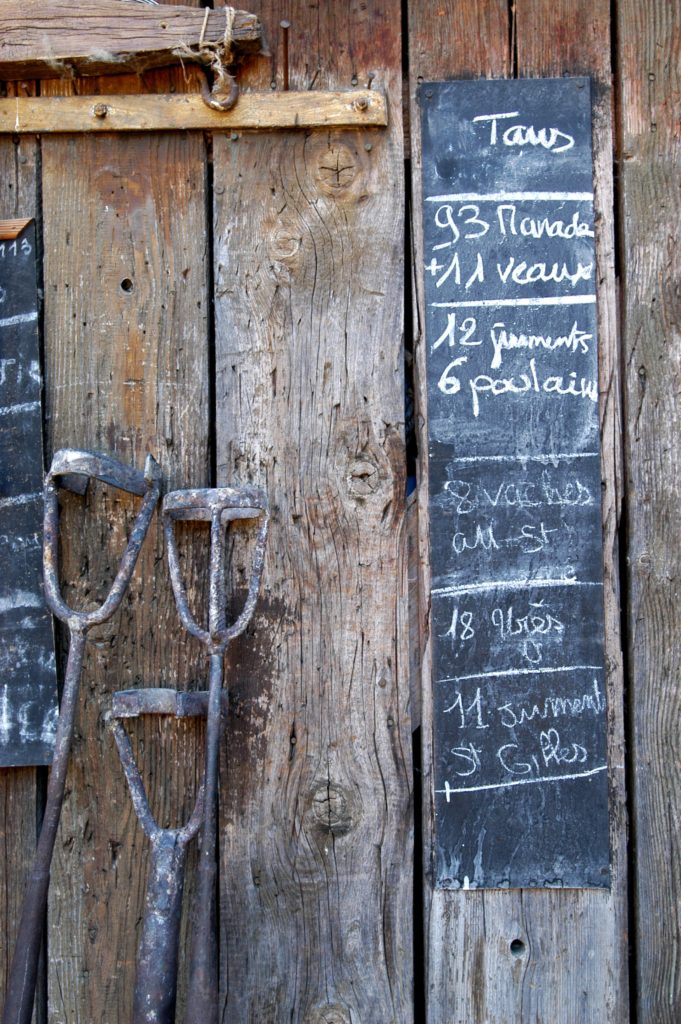 113
Taus
93 Manade
+11 veaux
12 juments
6 poulain
8 vaches
all St
18
11 jument
St Gilles